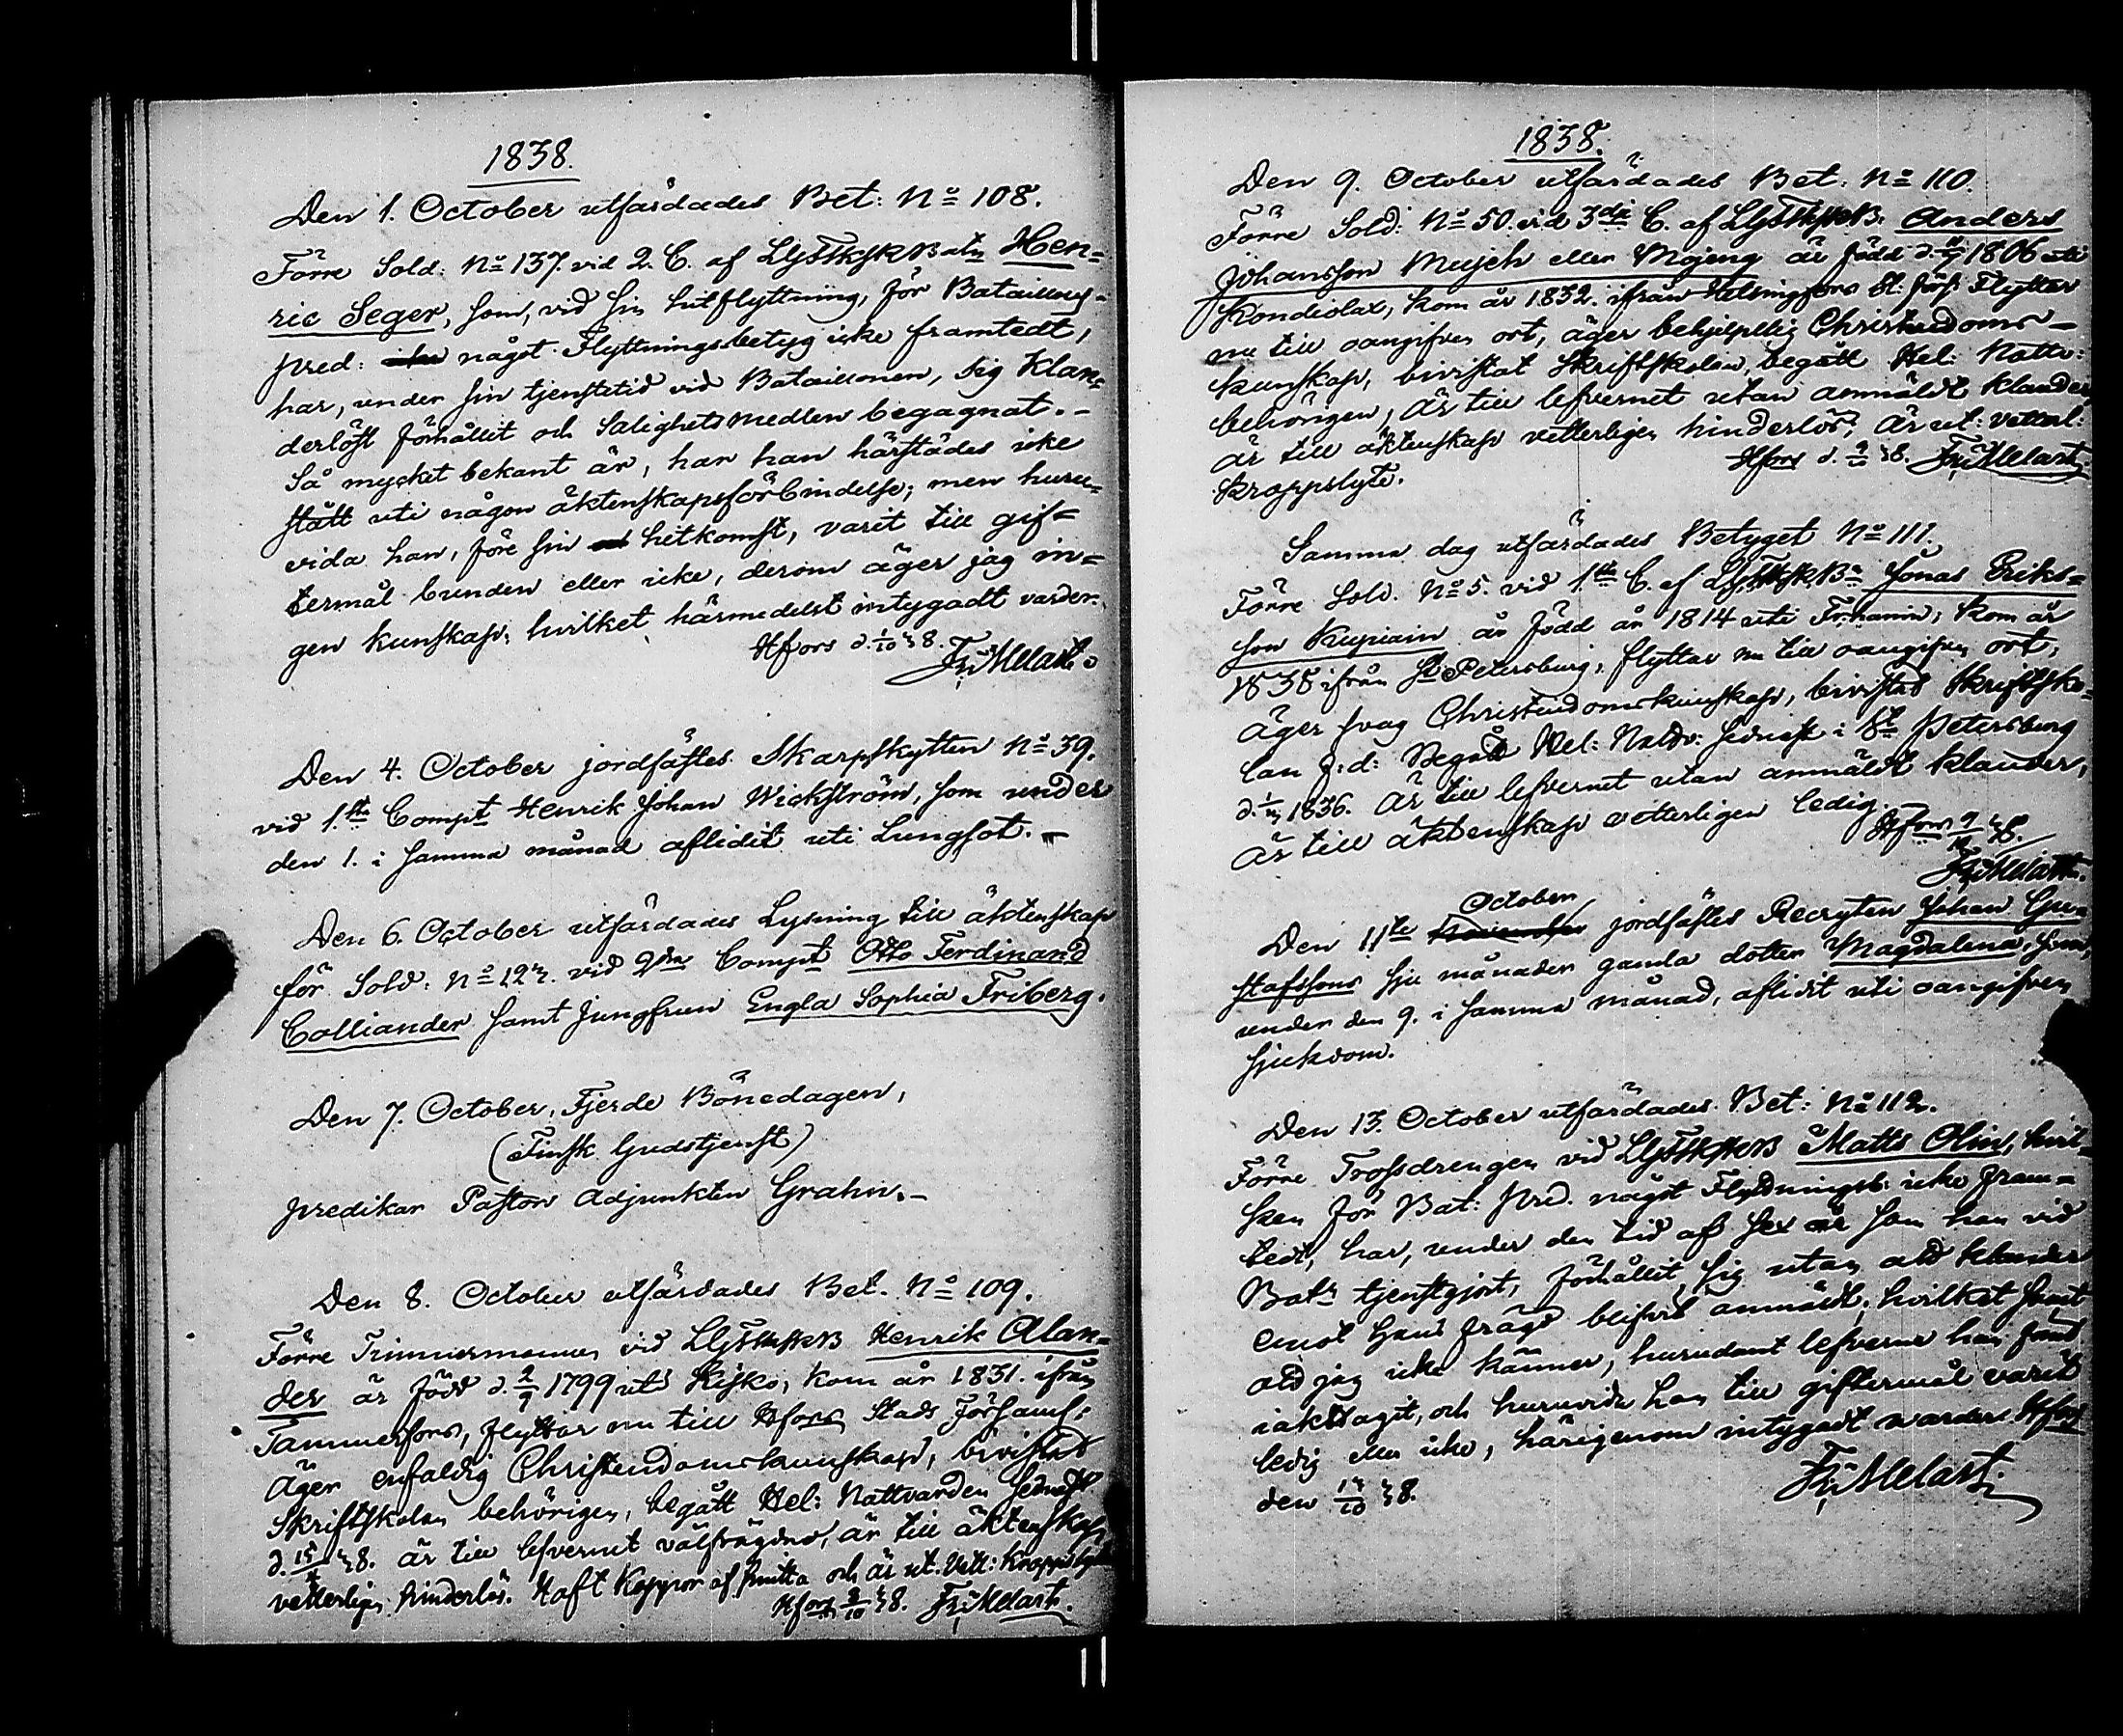 1838.
Den 1. October utfärdades Bet: No 108.
Förre Sold: No 137. vid 2. C. af LGFFskskBatn Hen=
ric Seger, som, vid sin hitflyttning, för Bataillons=
pred: något Flyttningsbetyg icke framtedt,
har, under sin tjenstetid vid Bataillonen, sig klan=
derlöst förhållit och Salighetsmedlen begagnat. -
Så mycket bekant är, har han härstädes icke
stått uti någon äktenskapsförbindelse; men huru=
vida han, före sin hitkomst, varit till gif=
termål bunden eller icke, derom äger jag in=
gen kunskap; hvilket härmedelst intygadt varder.
Hfors d. 1/10 38. Fr: Melart.
Den 4. October jordfästes Skarpskytten No 39.
vid 1.sta Compt Henrik Johan Wickström, som under
den 1. i samma månad aflidit uti Lungsot. -
Den 6. October utfärdades Lysning till äktenskap
för Sold: No 123. vid 2dra Compt Otto Ferdinand
Colliander samt Jungfrun Engla Sophia Friberg.
Den 7. October, Fjerde Bönedagen,
(Finsk Gudstjenst)
predikar Pastors Adjunkten Grahn. -
Den 8. October utfärdades Bet. No 109.
Förre Timmermannen vid Henrik Alan=
der är född d. 2/9 1799 uti Kisko, kom år 1831. ifrån
Tammerfors, flyttar nu till Hfors Stads Församl:
Äger enfaldig Christendomskunskap, bivistat
Skriftskolan behörigen, begått Hel: Nattvarden sednast
d. 38. är till lefvernet välfrägdad, är till äktenskap
vetterligen hinderlös. Haft Koppor af smitta och är ut. Vett: Kroppslyte
Hfors 8/10 38. Fr: Melart.
1838.
Den 9. October utfärdades Bet: No 110.
Förre Sold: No 50. vid 3dje C. af Anders
Johansson Mujeh eller Mojeng är född 1806 uti
Kondiolax, kom år 1832. ifrån Helsingfors Förs: Flyttar
nu till oangifven ort, äger behjelplig Christendoms-
kunskap, bivistat Skriftskolan, begått Hel: Nattv:
behörigen, Är till lefvernet utan anmäldt klander,
är till äktenskap vetterligen hinderlös; Är ut: vetterl:
kroppslyte. Hfors d. 9/10 38. Fr: Melart.
Samma dag utfärdades Betyget No 111.
Förre Sold. No 5. vid 1sta C. af Jonas Eriks=
son Kupiain är född år 1814 uti Fr:hamn; kom år
1835 ifrån St Petersburg, flyttar nu till oangifven ort,
äger svag Christendomskunskap, bivistat Skriftsko=
lan Begått Hel: Nattv: sednast i St Petersburg
d. 1836. Är till lefvernet utan anmäldt klander,
är till äktenskap vetterligen ledig.
Hfors 9/10 38.
Fr: Melart.
October
Den 11te November jordfästes Recryten Johan Gu=
stafssons sju månader gamla dotter Magdalena, som,
under den 9. i samma månad, aflidit uti oangifven
sjukdom.
Den 13. October utfärdades Bet: No 112.
Förre Trossdrengen vid Matts Olin, hvil=
ken för Bat: Pred. något Flyttningsb: icke fram=
tedt, har, under den tid af sex år som han vid
Batn tjenstgjort, förhållit sig utan att klander
emot hans frägd blifvit anmäldt; hvilket samt
att jag icke känner, hurudant lefverne han förut
iakttagit, och huruvida han till giftermål varit
ledig eller icke, härigenom intygadt varder. Hfors
den 13/10 38. Fr: Melart.